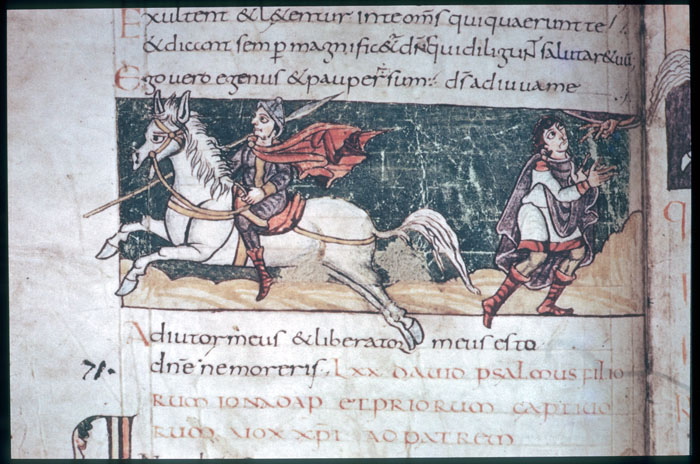 Exultent & l&entur inte omſ qui quaerunt te
& dicant semp magnific&ur dnſ qui diligunt salutare tuū
Ego uero egenus & pauper sum: dſ adiuuame
Adiutor meus & liberator meus esto
dnē nemoreris. LXX DAVID PSALMUS FILIO
71
RUM IONADAP ET PRIORUM CAPTIUO
RUM. UOX XPI AD PATREM